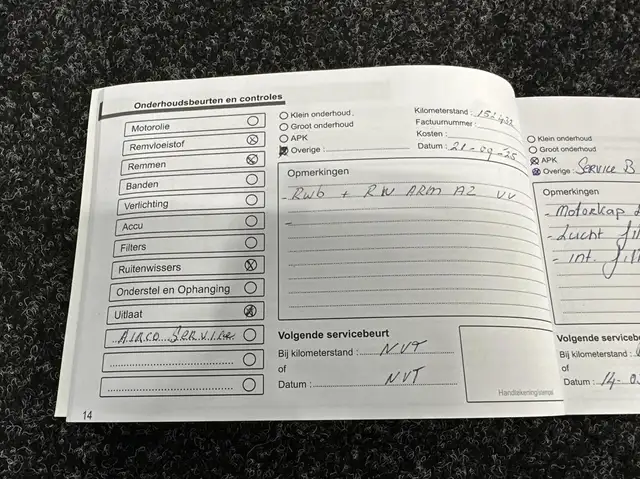 Onderhoudsbeurten en controles
Motorolie
Remvloeistof
Remmen
Banden
Verlichting
Accu
Filters
Ruitenwissers
Onderstel en Ophanging
Uitlaat
AIRCO SERVICE
Klein onderhoud
Groot onderhoud
APK
Overige :
Kilometerstand :
Factuurnummer :
Kosten :
Datum : 21-09-25
Opmerkingen
- RWB + RW ARM AZ VV
-
Volgende servicebeurt
Bij kilometerstand : NVT
of
Datum : NVT
Handtekening/stempel
14
Klein onderhoud
Groot onderhoud
APK
Overige : SERVICE B
Opmerkingen
- Motorkap
- Lucht
- int.
Volgende servicebe
Bij kilometerstand :
of
Datum : 14-0